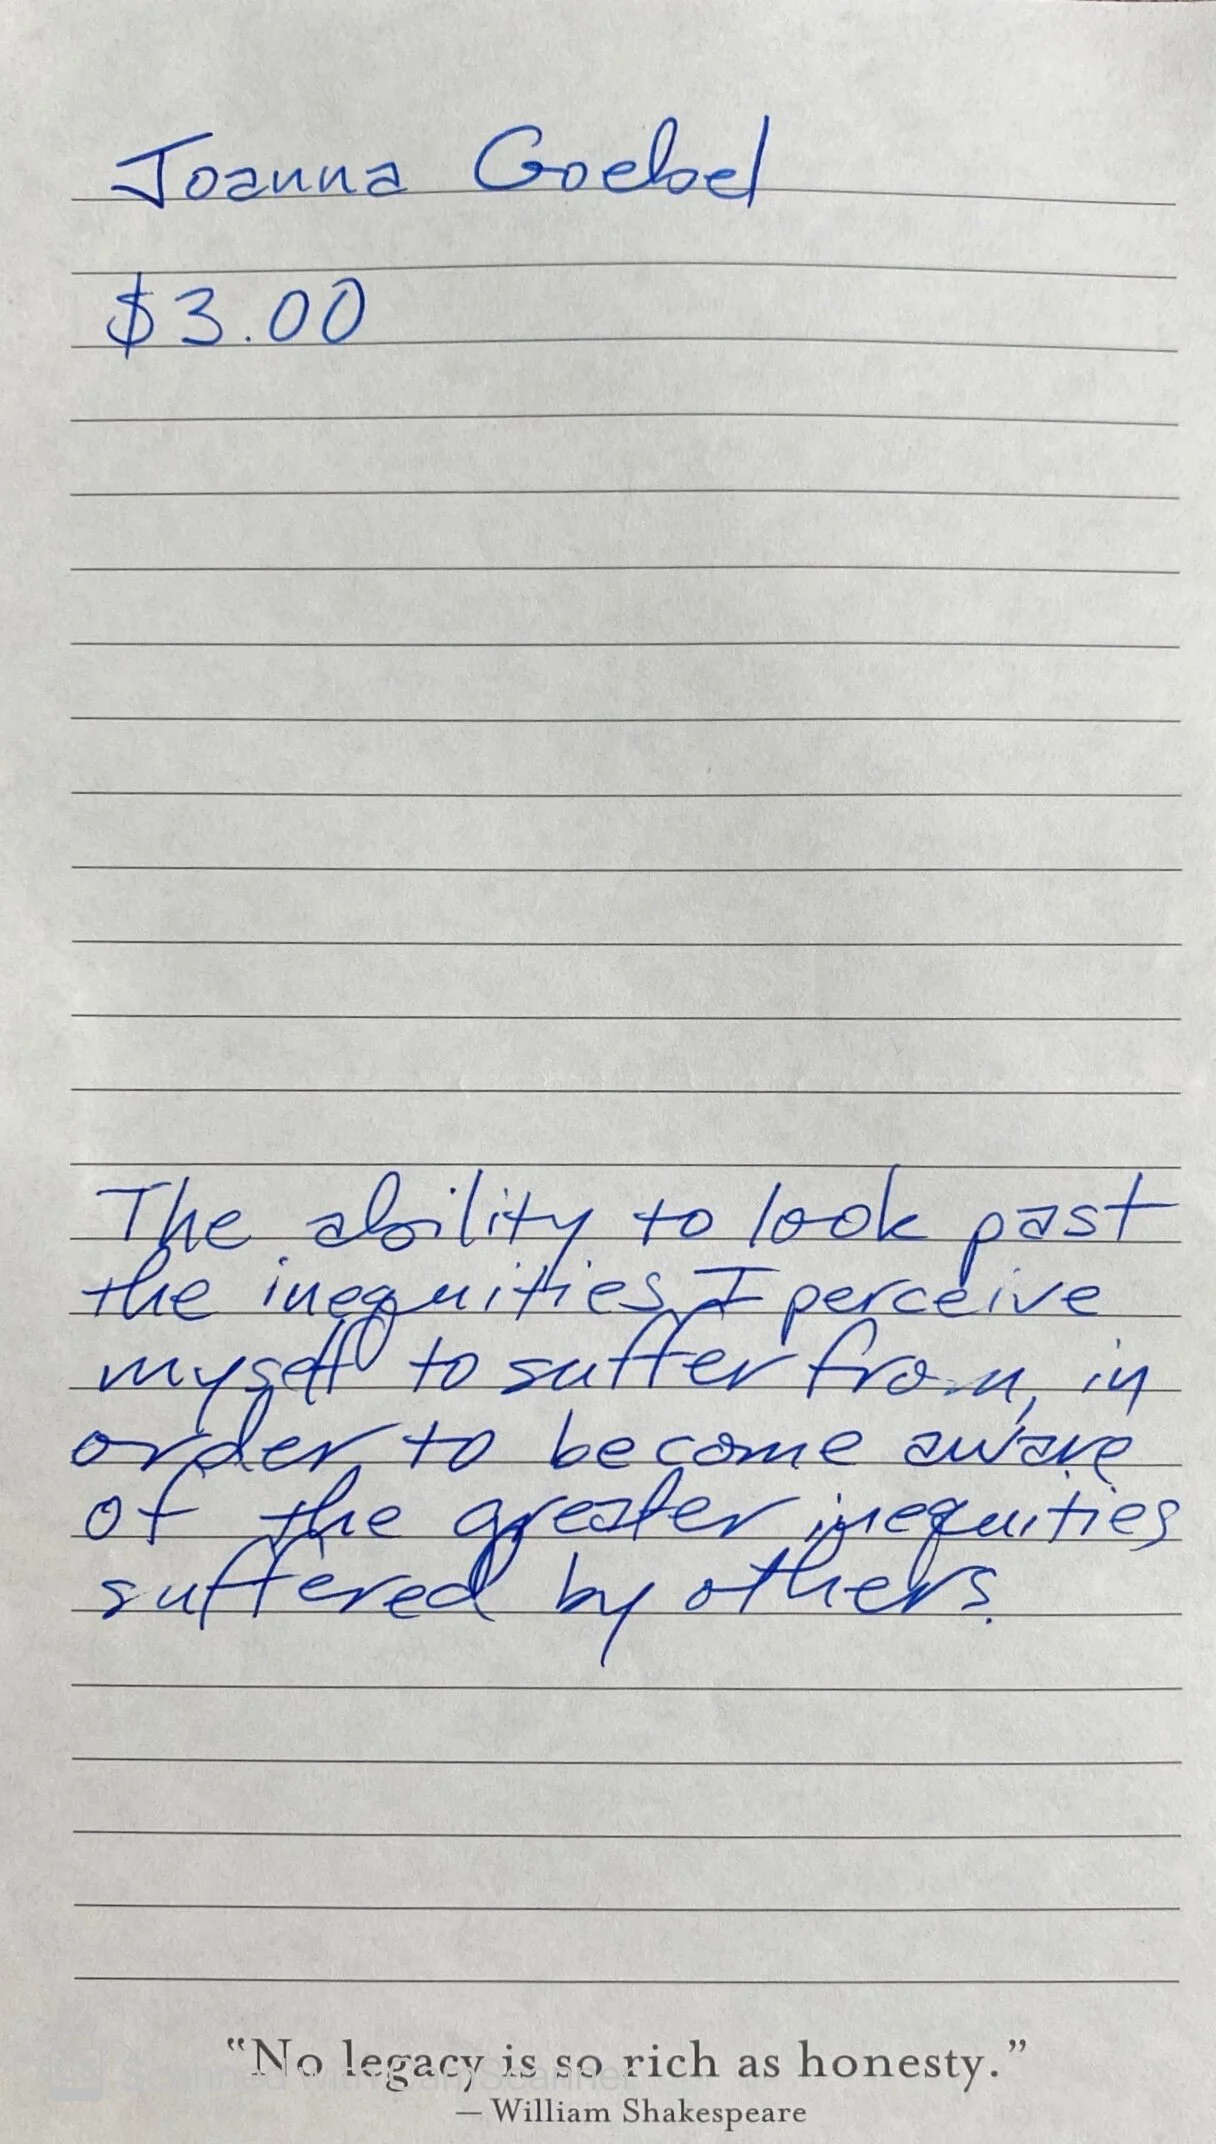 Joanna Goebel
$3.00
The ability to look past
the inequities I perceive
myself to suffer from, in
order to become aware
of the greater inequities
suffered by others.
"No legacy is so rich as honesty."
— William Shakespeare